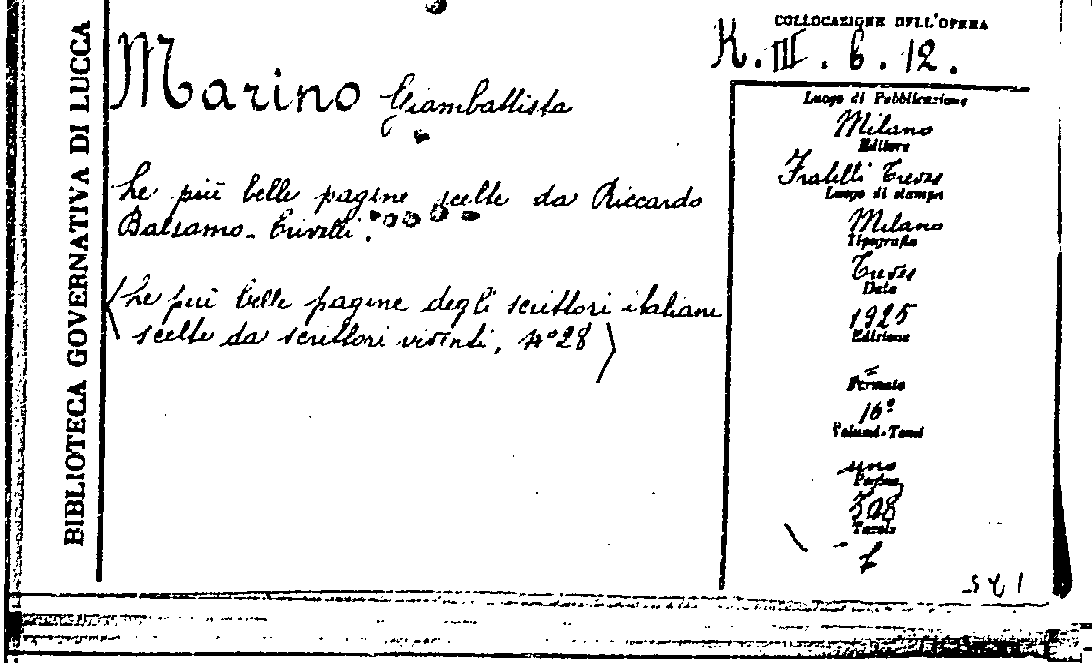 BIBLIOTECA GOVERNATIVA DI LUCCA
Marino Giambattista
Le più belle pagine scelte da Riccardo
Balsamo-Crivelli.
(Le più belle pagine degli scrittori italiani
scelte da scrittori viventi, n° 28)
COLLOCAZIONE DELL'OPERA
K. III. 6. 12.
Luogo di Pubblicazione
Milano
Editore
Fratelli Treves
Luogo di stampa
Milano
Tipografia
Treves
Data
1925
Edizione
=
Formato
16°
Volumi-Tomi
uno
Pagine
Tavole
1